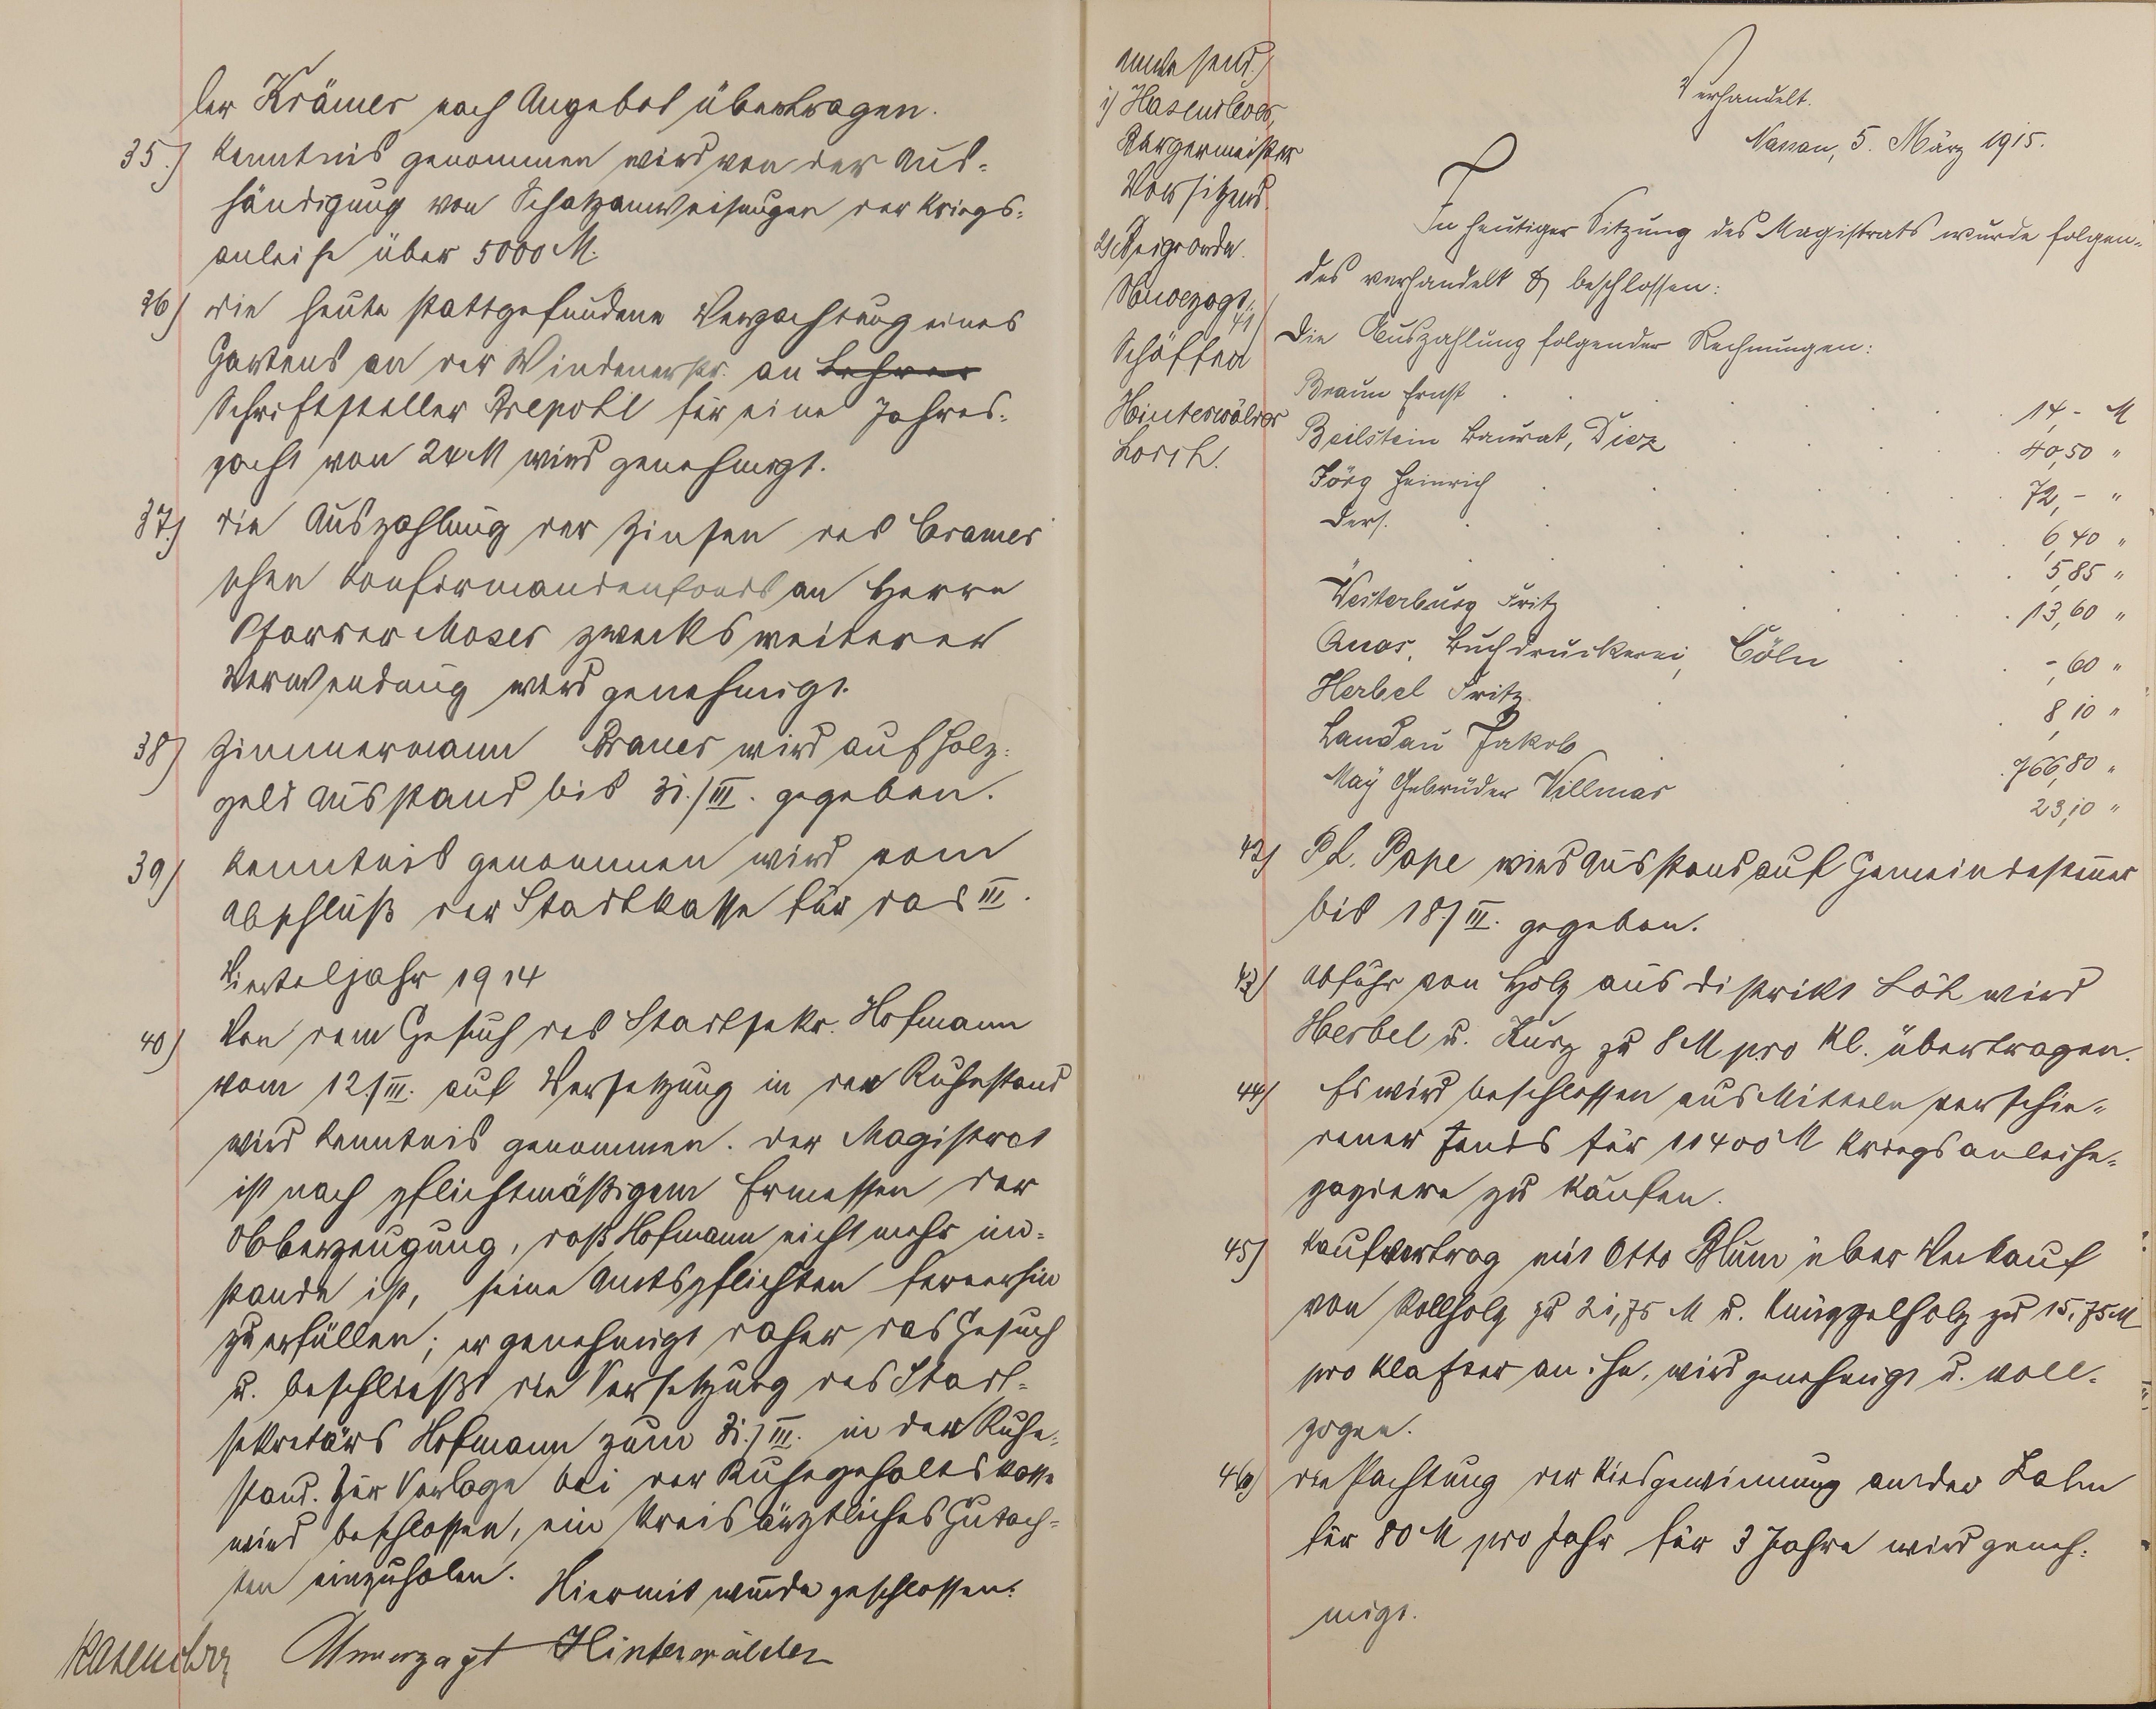 ler Krämer nach Angebot übertragen.
35.) Kenntnis genommen wird von der Aus-
händigung von Schatzanweisungen der Kriegs-
anleihe über 5000 M.
36) die heute stattgefundene Verpachtung eines
Gartens an der Windenerstr. an Lehrer
Schriftsteller Drepohl für eine Jahres-
pacht von 24 M wird genehmigt.
37.) die Auszahlung der Zinsen des Cramer
schen Konfirmandenfonds an Herrn
Pfarrer Moser zwecks weiterer
Verwendung wird genehmigt.
38) Zimmermann Bauer wird auf Holz-
geld Ausstand bis 31./III. gegeben.
39) Kenntnis genommen wird vom
Abschluß der Stadtkasse für das III.
Vierteljahr 1914
40) Von dem Gesuch des Stadtsekr. Hofmann
vom 12./III. auf Versetzung in den Ruhestand
wird Kenntnis genommen. Der Magistrat
ist nach pflichtmäßigem Ermessen der
Überzeugung, daß Hofmann nicht mehr im-
stande ist, seine Amtspflichten fernerhin
zu erfüllen; er genehmigt daher das Gesuch
u. beschließt die Versetzung des Stadt-
sekretärs Hofmann zum 31./III. in den Ruhe-
stand. Zur Vorlage bei der Ruhegehaltskasse
wird beschlossen, ein kreisärztliches Gutach-
ten einzuholen. Hiermit wurde geschlossen.
Hasenclever Unverzagt Hinterwälder
Anwesend.)
1) Hasenclever,
Bürgermeister
Vorsitzend.
2) Beigeordn.
Unverzagt,
Schöffen
Hinterwälder
Lorch.
Verhandelt.
Nassau, 5. März 1915.
In heutiger Sitzung des Magistrats wurde folgen-
des verhandelt & beschlossen:
41) Die Auszahlung folgender Rechnungen:
Braun Ernst 14,- M
Beilstein Baurat, Diez 40,50 "
Jörg Heinrich 72,- "
Ders. 6,40 "
5,85 "
Westerburg Fritz 13,60 "
Buchdruckerei, Cöln -,60 "
Herbel Fritz 8,10 "
Landau Jakob 766,80 "
May Gebrüder Villmar 23,10 "
42) Ph. Pape wird Ausstand auf Gemeindesteuer
bis 18/III. gegeben.
43) Abfuhr von Holz aus Distrikt Löh wird
Herbel u. Kurz zu 8 M pro Kl. übertragen.
44) Es wird beschlossen aus Mitteln verschie-
dener Fonds für 11400 M Kriegsanleihe-
papiere zu kaufen.
45) Kaufvertrag mit Otto Blum über Verkauf
von Rollholz zu 21,75 M u. Knüppelholz zu 15,75 M
pro Klafter an ihn, wird genehmigt u. voll-
zogen.
46) die Pachtung der Kiesgewinnung an der Lahn
für 80 M pro Jahr für 3 Jahre wird geneh-
migt.